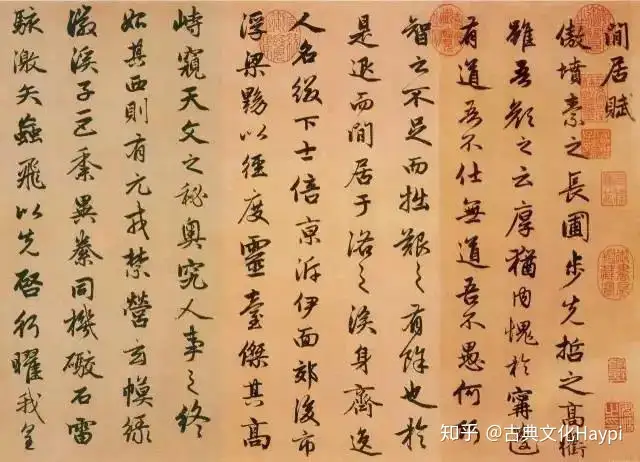 閒居賦
傲墳素之長圃步先哲之高衢
雖吾顏之云厚猶內愧於甯蘧
有道吾不仕無道吾不愚何巧
智之不足而拙艱之有餘也於
是退而閒居于洛之涘身齊逸
人名綴下士倍京泝伊面郊後市
浮梁黝以徑度靈臺傑其高
峙窺天文之秘奧究人事之終
始其西則有元戎禁營玄幙綠
徽溪子巨黍異絭同機礮石雷
駭激矢蝱飛以先啓行耀我皇
知乎 @古典文化Haypi